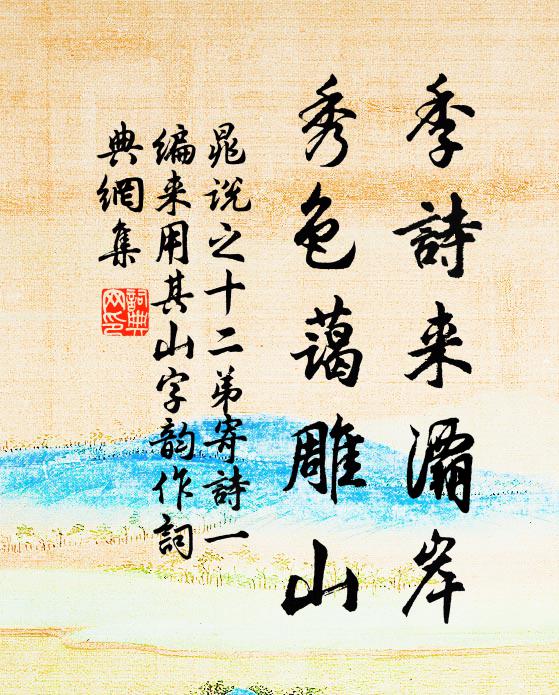 季詩来灞岸
秀色藹雕山
晁说之十二弟寄詩一
编来用其山字韵作詞
典網集
詞典网印